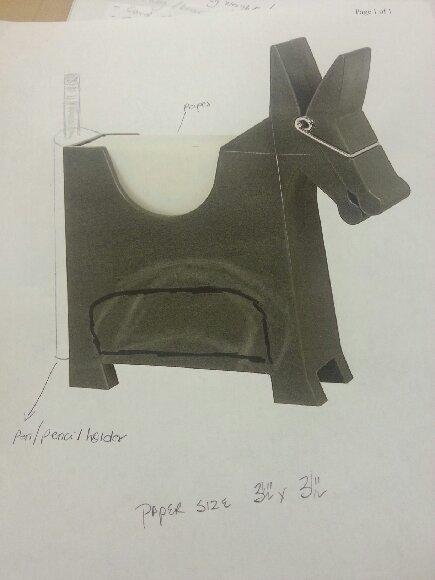 Page 1 of 1
paper
pen/pencil holder
PAPER SIZE 3½" x 3½"